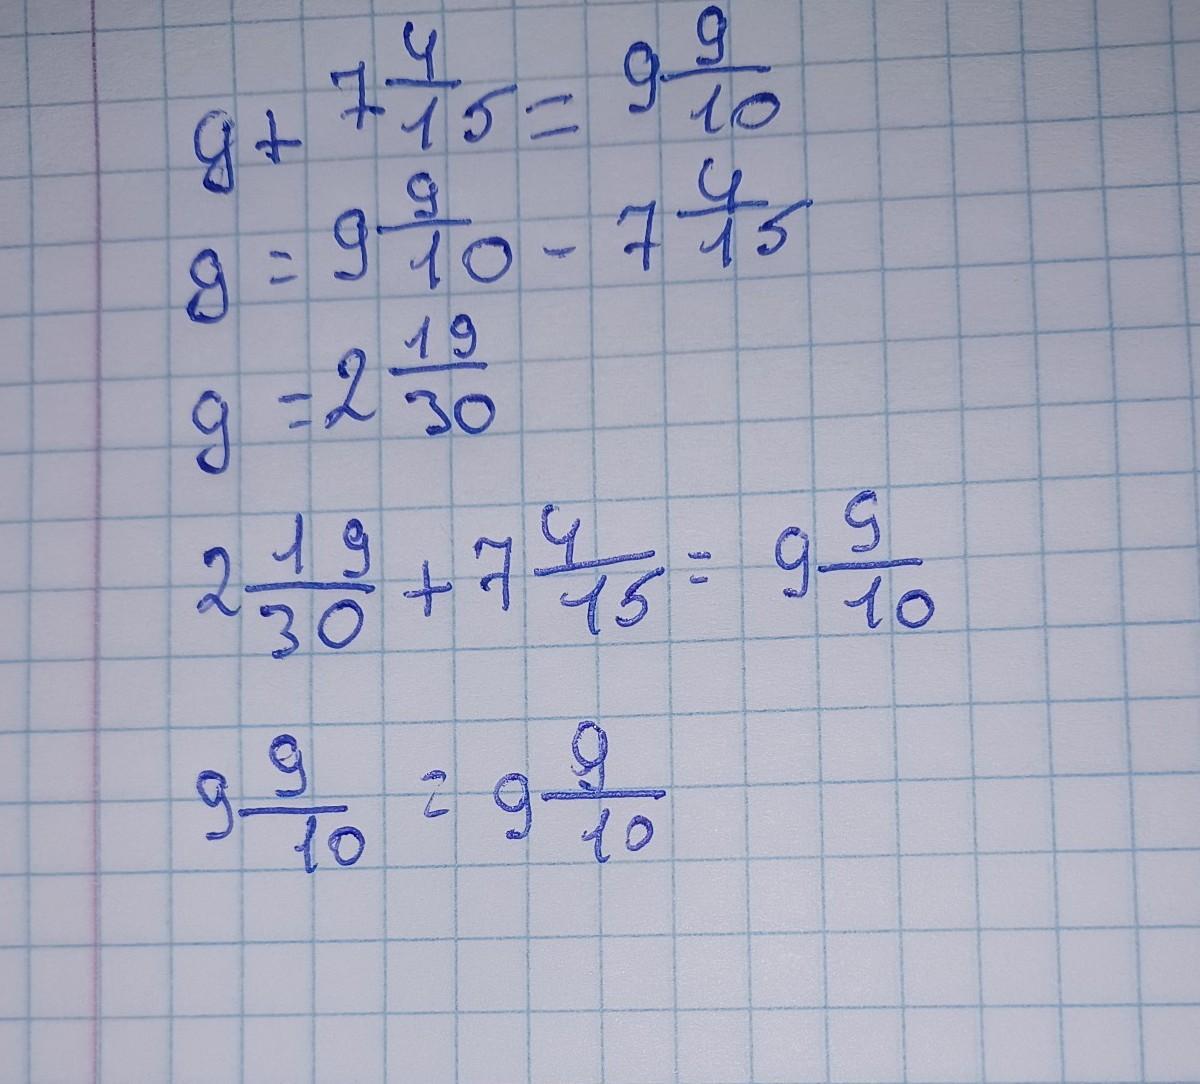 y + 7 4/15 = 9 9/10
y = 9 9/10 - 7 4/15
y = 2 19/30
2 19/30 + 7 4/15 = 9 9/10
9 9/10 = 9 9/10